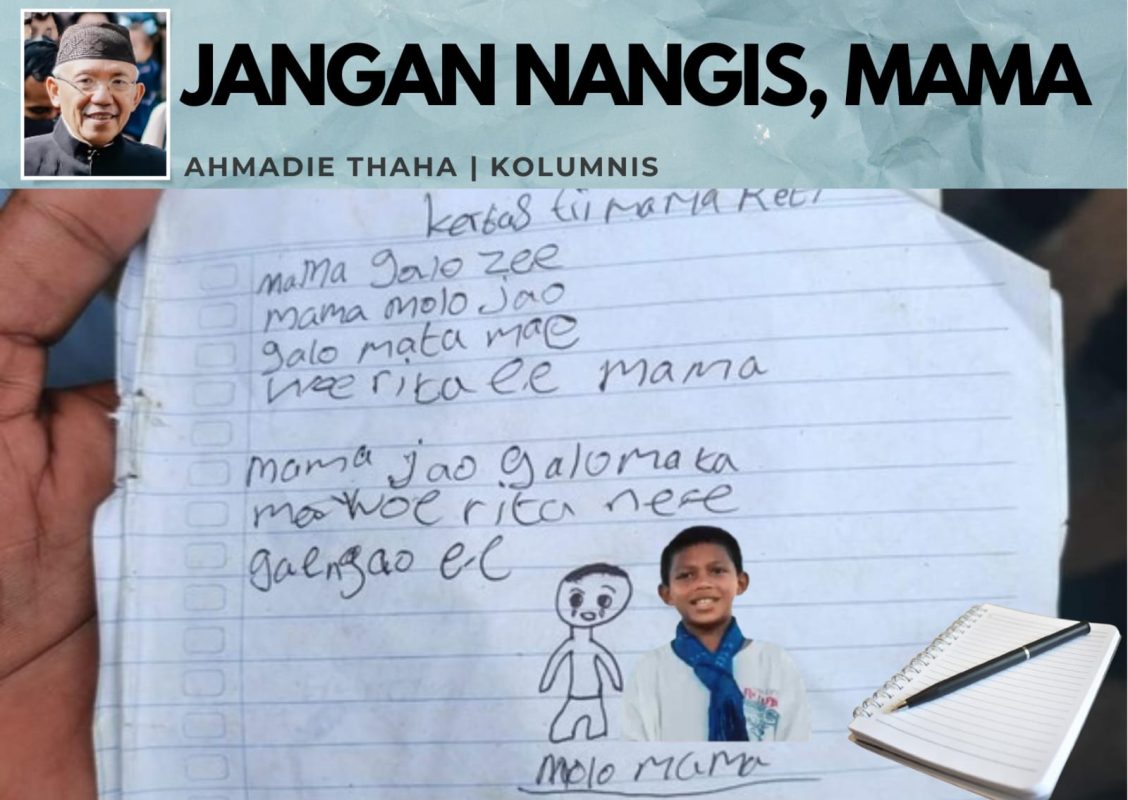 JANGAN NANGIS, MAMA
AHMADIE THAHA | KOLUMNIS
kertas tii mama Reti
mama galo zee
mama molo jao
galo mata mae
woe rita ee mama
mama jao galo mata
mae woe rita nee
gae ngao ee
molo mama